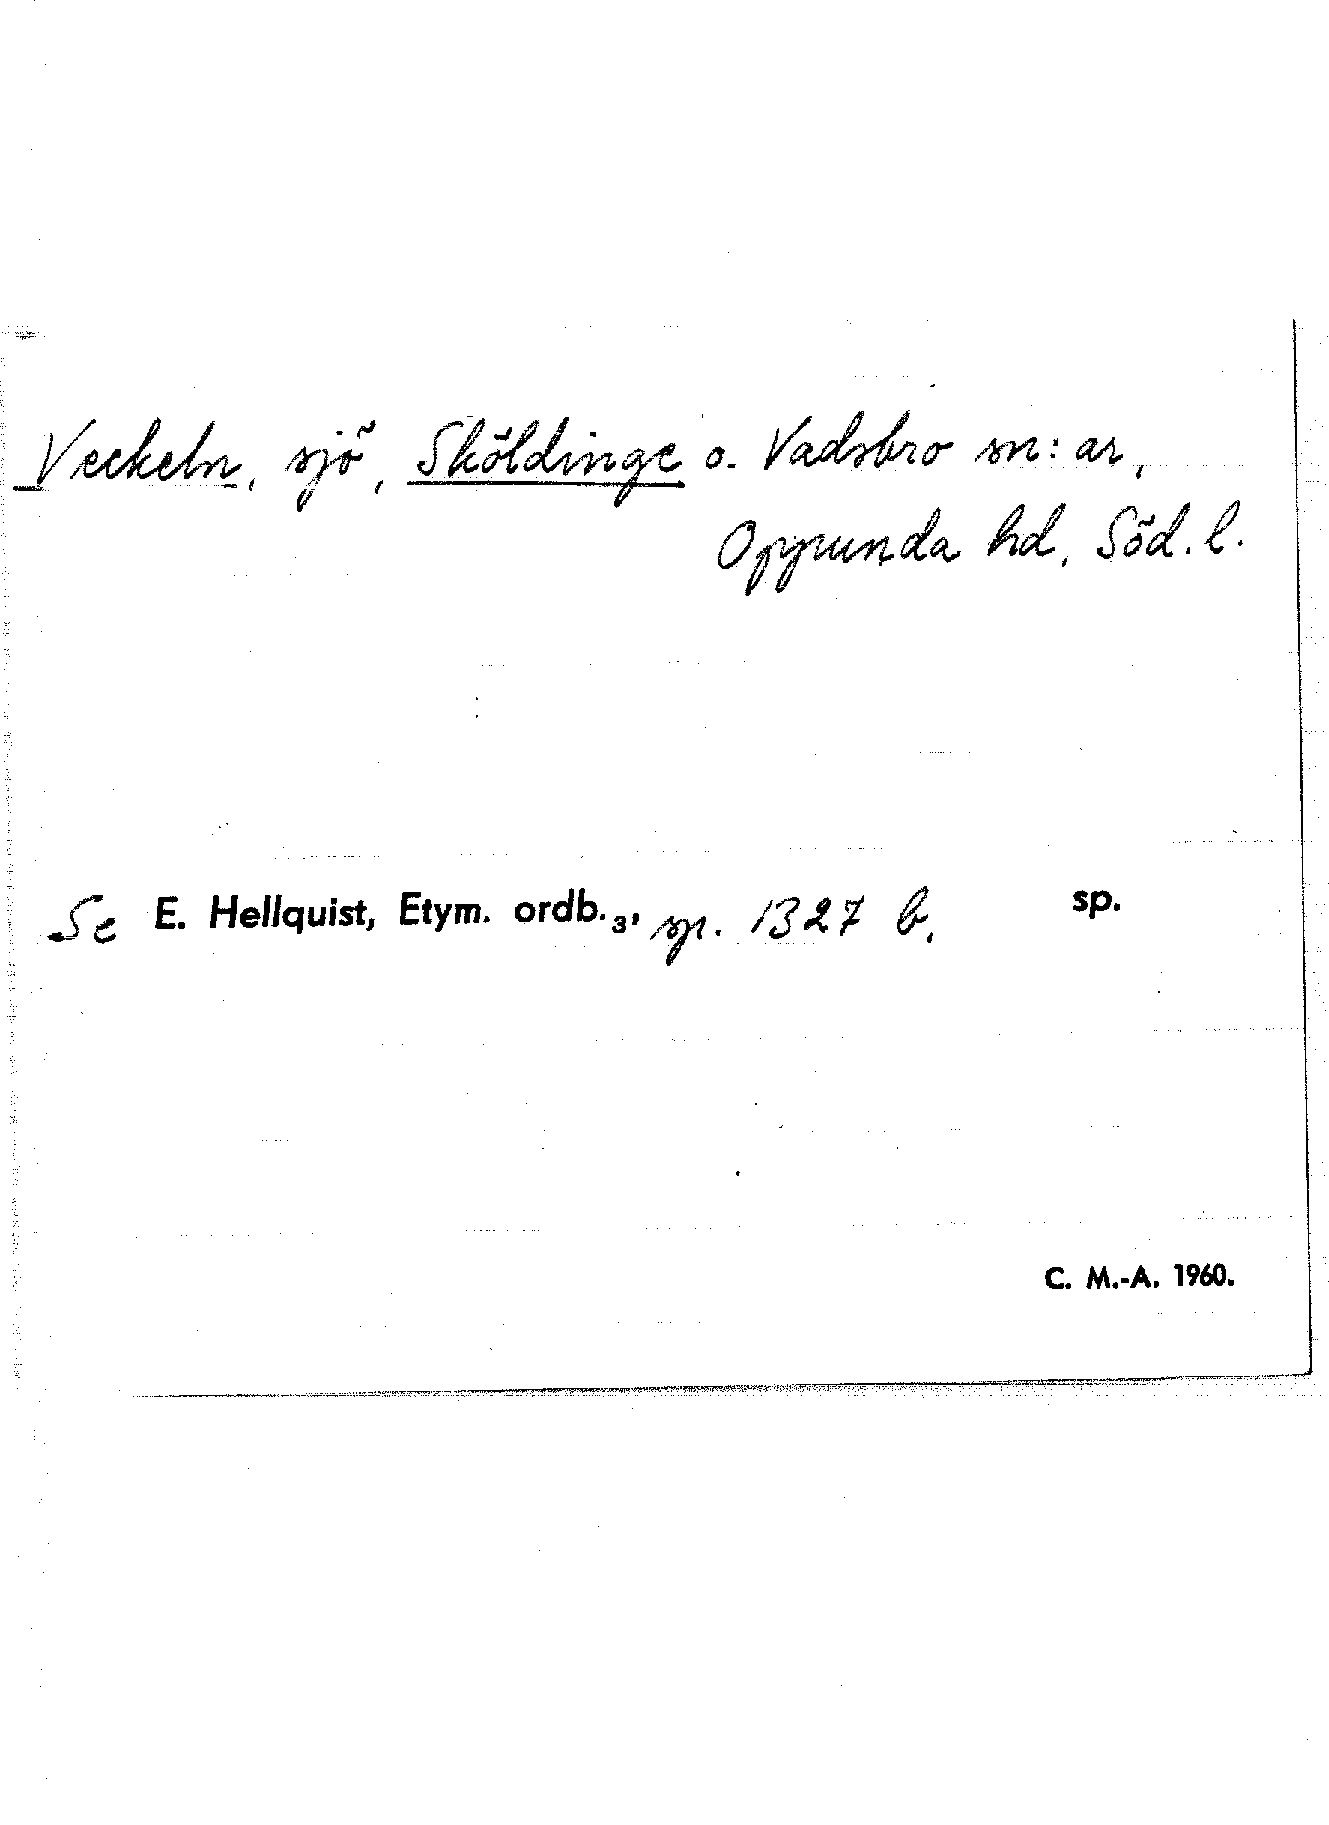 Veckeln, sjö, Sköldinge o. Vadsbro sn:ar,
Oppunda hd, Söd. l.
Se E. Hellquist, Etym. ordb.₃, sp. 1327 b. sp.
C. M.-A. 1960.